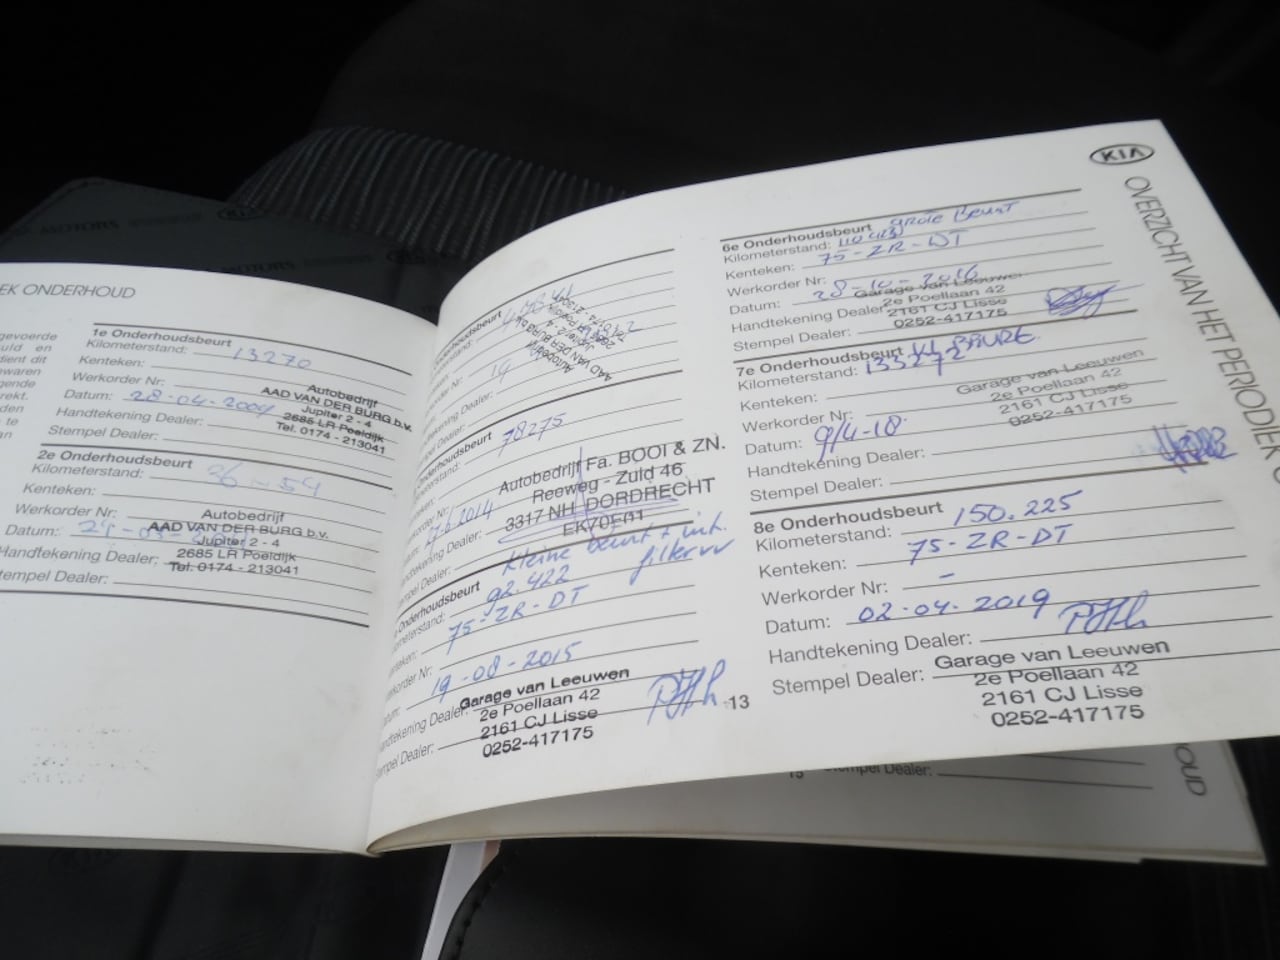 EK ONDERHOUD
gevoerde
en
dient dit
waren
gende
rekt.
den
te
an
1e Onderhoudsbeurt
Kilometerstand: 13270
Kenteken:
Werkorder Nr:
Datum: 28-04-2009
Handtekening Dealer:
Stempel Dealer:
Autobedrijf
AAD VAN DER BURG b.v.
Jupiter 2 - 4
2685 LR Poeldijk
Tel. 0174 - 213041
2e Onderhoudsbeurt
Kilometerstand:
Kenteken:
Werkorder Nr:
Datum:
Handtekening Dealer:
Stempel Dealer:
Autobedrijf
AAD VAN DER BURG b.v.
Jupiter 2 - 4
2685 LR Poeldijk
Tel. 0174 - 213041
Onderhoudsbeurt
Autobedrijf
AAD VAN DER BURG
Jupiter 2 - 4
Onderhoudsbeurt
78275
Autobedrijf Fa. BOOI & ZN.
Reeweg - Zuid 46
3317 NH DORDRECHT
Stempel Dealer:
Kleine beurt + int.
filter
Onderhoudsbeurt
92.422
75-ZR-DT
19-08-2015
Handtekening Dealer:
Stempel Dealer:
Garage van Leeuwen
2e Poellaan 42
2161 CJ Lisse
0252-417175
13
KIA
OVERZICHT VAN HET PERIODIEK O
6e Onderhoudsbeurt grote Beurt
Kilometerstand:
Kenteken: 75-ZR-DT
Werkorder Nr:
Datum: 28-10-2016
Handtekening Dealer:
Stempel Dealer:
Garage van Leeuwen
2e Poellaan 42
2161 CJ Lisse
0252-417175
7e Onderhoudsbeurt
Kilometerstand: 133272
Kenteken:
Werkorder Nr:
Datum: 9/4-18
Handtekening Dealer:
Stempel Dealer:
Garage van Leeuwen
2e Poellaan 42
2161 CJ Lisse
0252-417175
8e Onderhoudsbeurt
Kilometerstand: 150.225
Kenteken: 75-ZR-DT
Werkorder Nr: -
Datum: 02-04-2019
Handtekening Dealer:
Stempel Dealer:
Garage van Leeuwen
2e Poellaan 42
2161 CJ Lisse
0252-417175
15
Stempel Dealer:
OUD